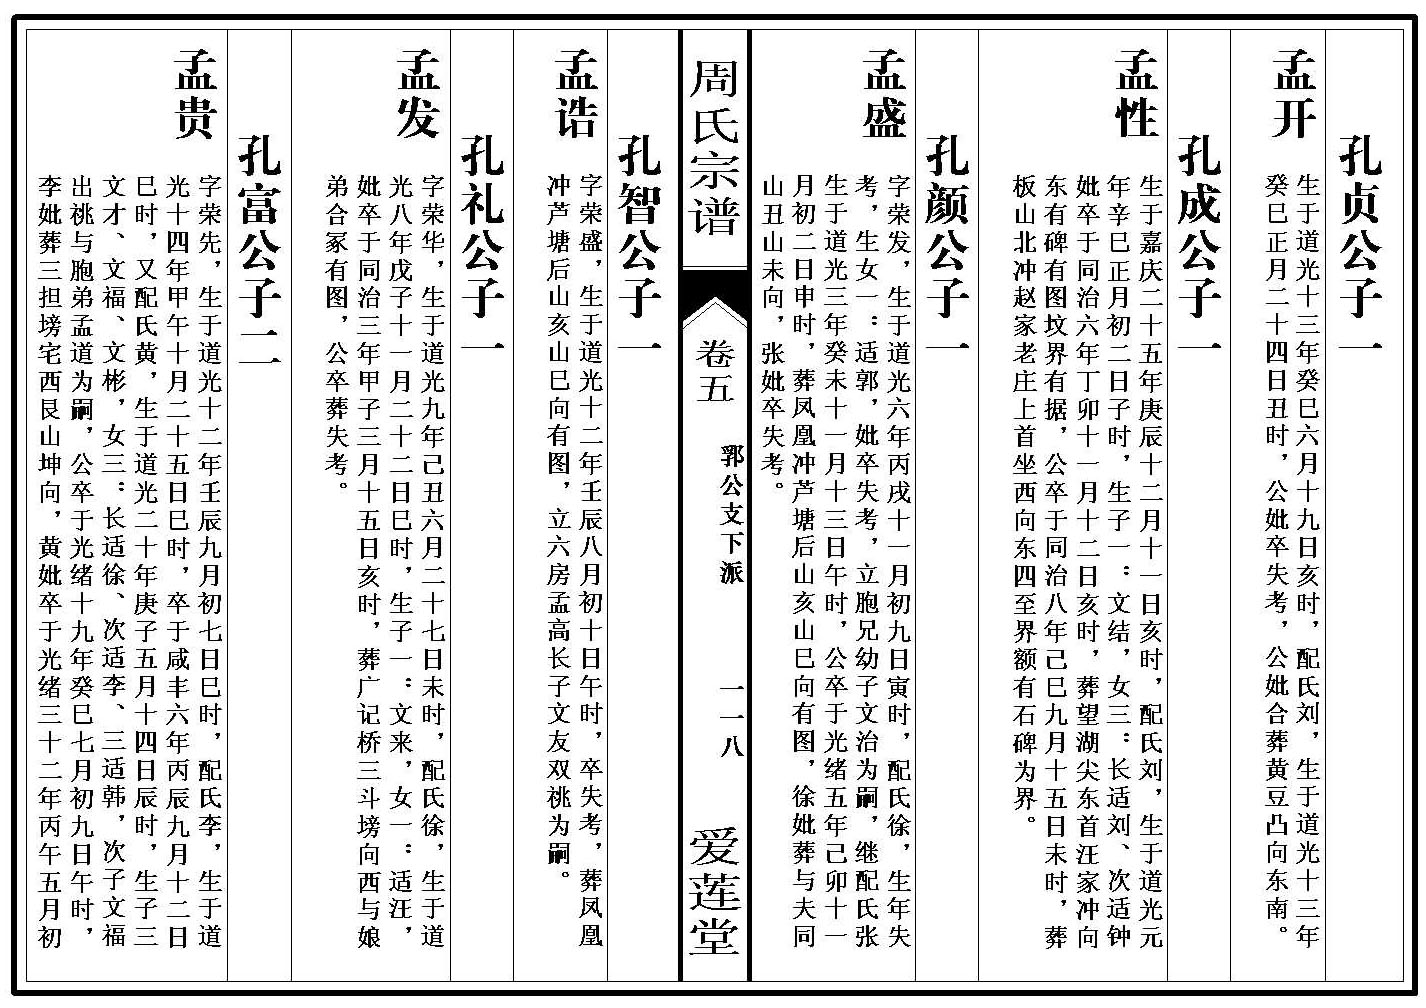 孔贞公子一
孟开
生于道光十三年癸巳六月十九日亥时，配氏刘，生于道光十三年
癸巳正月二十四日丑时，公妣卒失考，公妣合葬黄豆凸向东南。
孔成公子一
孟性
生于嘉庆二十五年庚辰十二月十一日亥时，配氏刘，生于道光元
年辛巳正月初二日子时，生子一：文结，女三：长适刘、次适钟
妣卒于同治六年丁卯十一月十二日亥时，葬望湖尖东首汪家冲向
东有碑有图坟界有据，公卒于同治八年己巳九月十五日未时，葬
板山北冲赵家老庄上首坐西向东四至界额有石碑为界。
孔颜公子一
孟盛
字荣发，生于道光六年丙戌十一月初九日寅时，配氏徐，生年失
考，生女一：适郭，妣卒失考，立胞兄幼子文治为嗣，继配氏张
生于道光三年癸未十一月十三日午时，公卒于光绪五年己卯十一
月初二日申时，葬凤凰冲芦塘后山亥山巳向有图，徐妣葬与夫同
山丑山未向，张妣卒失考。
周氏宗谱
卷五
郭公支下派
一一八
爱莲堂
孔智公子一
孟诰
字荣盛，生于道光十二年壬辰八月初十日午时，卒失考，葬凤凰
冲芦塘后山亥山巳向有图，立六房孟高长子文友双祧为嗣。
孔礼公子一
孟发
字荣华，生于道光九年己丑六月二十七日未时，配氏徐，生于道
光八年戊子十一月二十二日巳时，生子一：文来，女一：适汪，
妣卒于同治三年甲子三月十五日亥时，葬广记桥三斗塝向西与娘
弟合冢有图，公卒葬失考。
孔富公子二
孟贵
字荣先，生于道光十二年壬辰九月初七日巳时，配氏李，生于道
光十四年甲午十月二十五日巳时，卒于咸丰六年丙辰九月十二日
巳时，又配氏黄，生于道光二十年庚子五月十四日辰时，生子三
文才、文福、文彬，女三：长适徐、次适李、三适韩，次子文福
出祧与胞弟孟道为嗣，公卒于光绪十九年癸巳七月初九日午时，
李妣葬三担塝宅西艮山坤向，黄妣卒于光绪三十二年丙午五月初